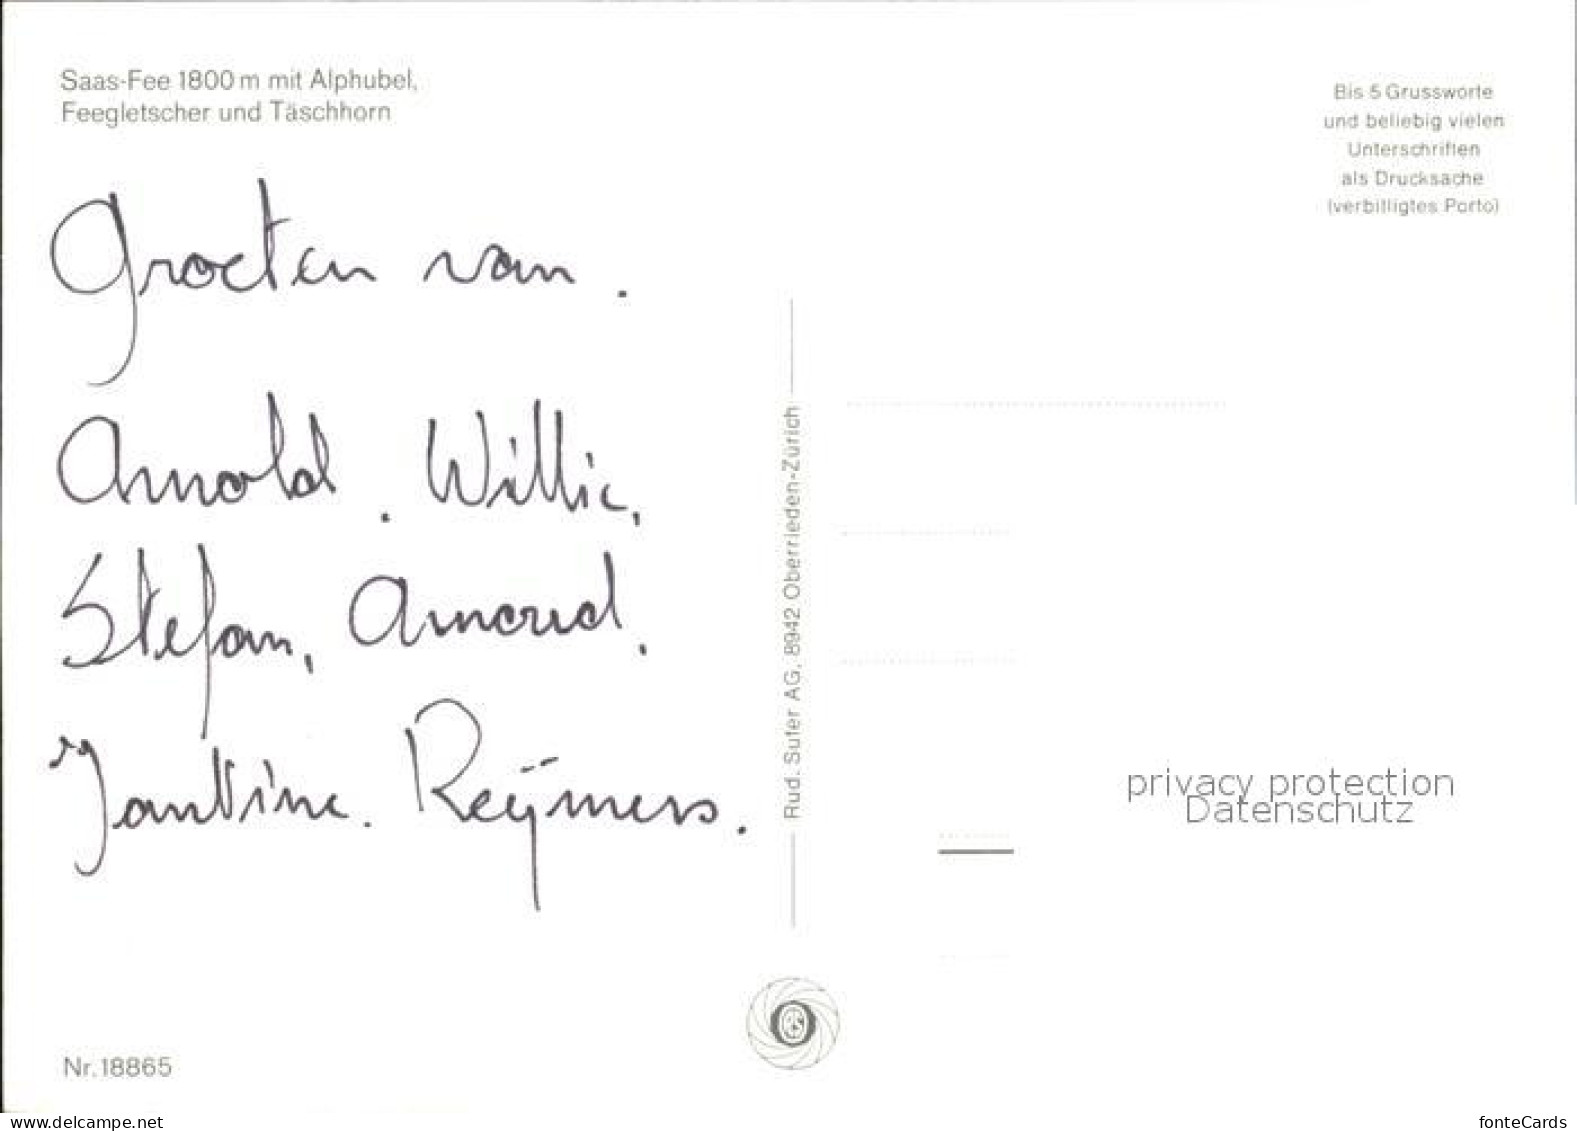 Saas-Fee 1800 m mit Alphubel,
Feegletscher und Täschhorn
Bis 5 Grussworte
und beliebig vielen
Unterschriften
als Drucksache
(verbilligtes Porto)
Groeten van.
Arnold. Willie,
Stefan, Arnoud.
Jantine. Reÿmers.
Rud. Suter AG, 8942 Oberrieden-Zürich
privacy protection
Datenschutz
Nr. 18865
www.delcampe.net
fonteCards